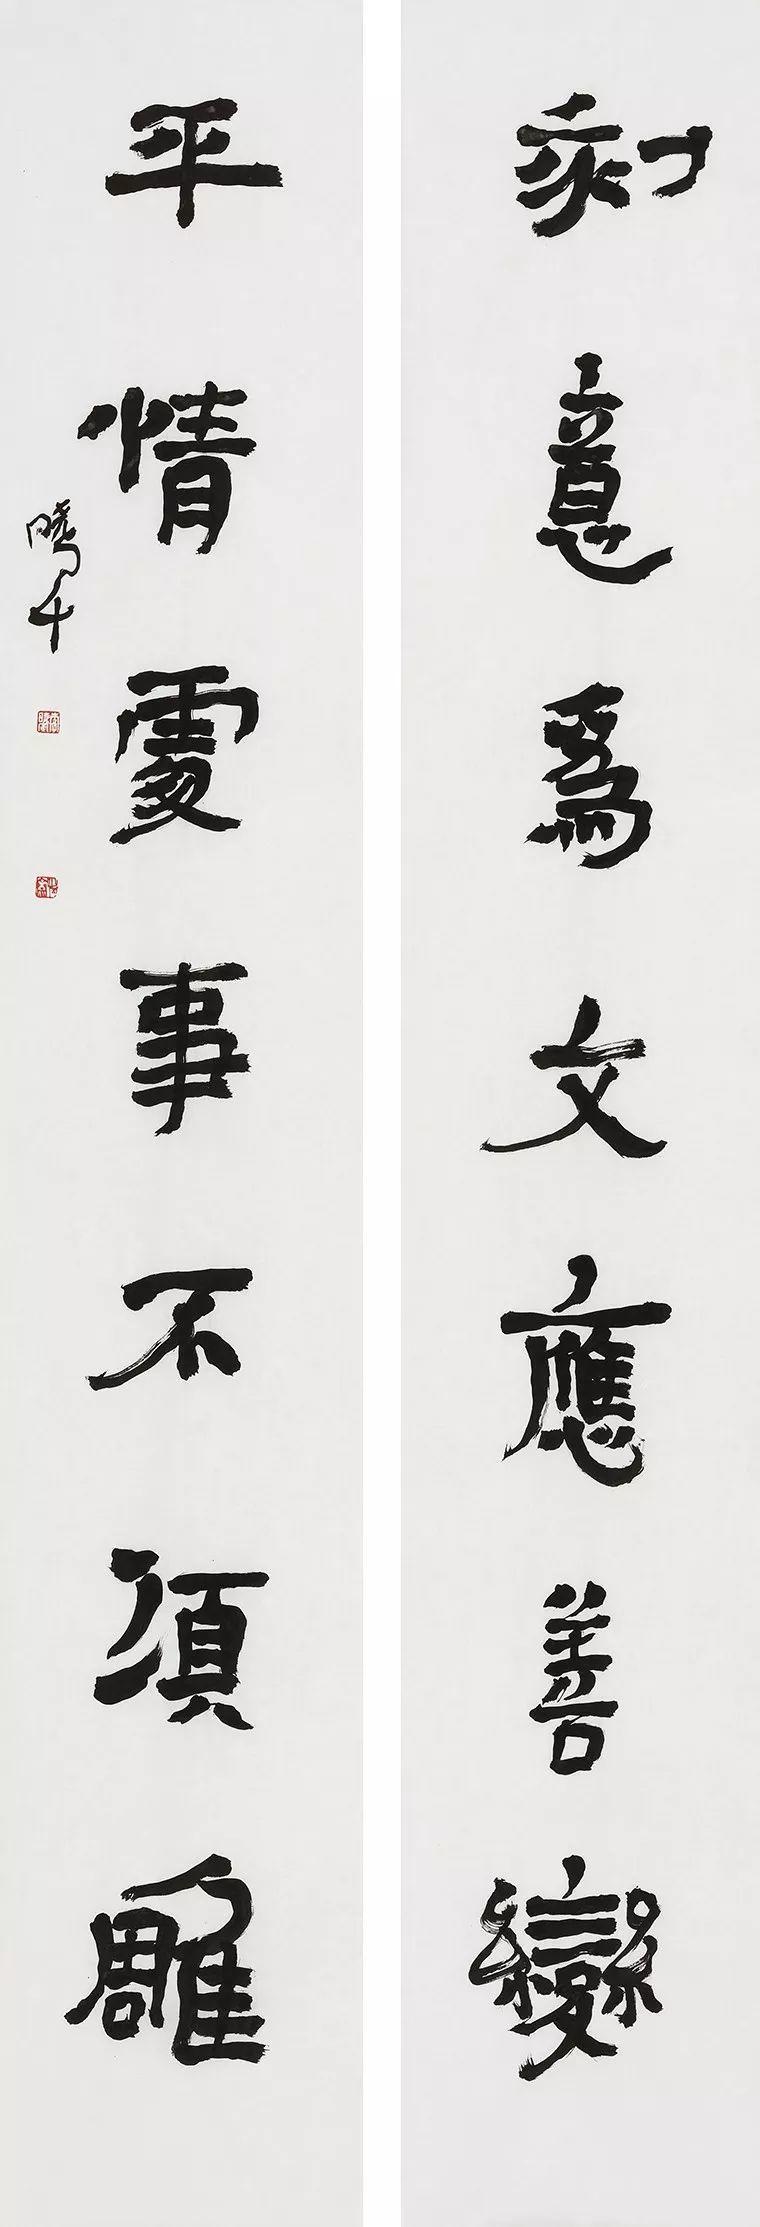 刻意爲文應善變
平情處事不須雕